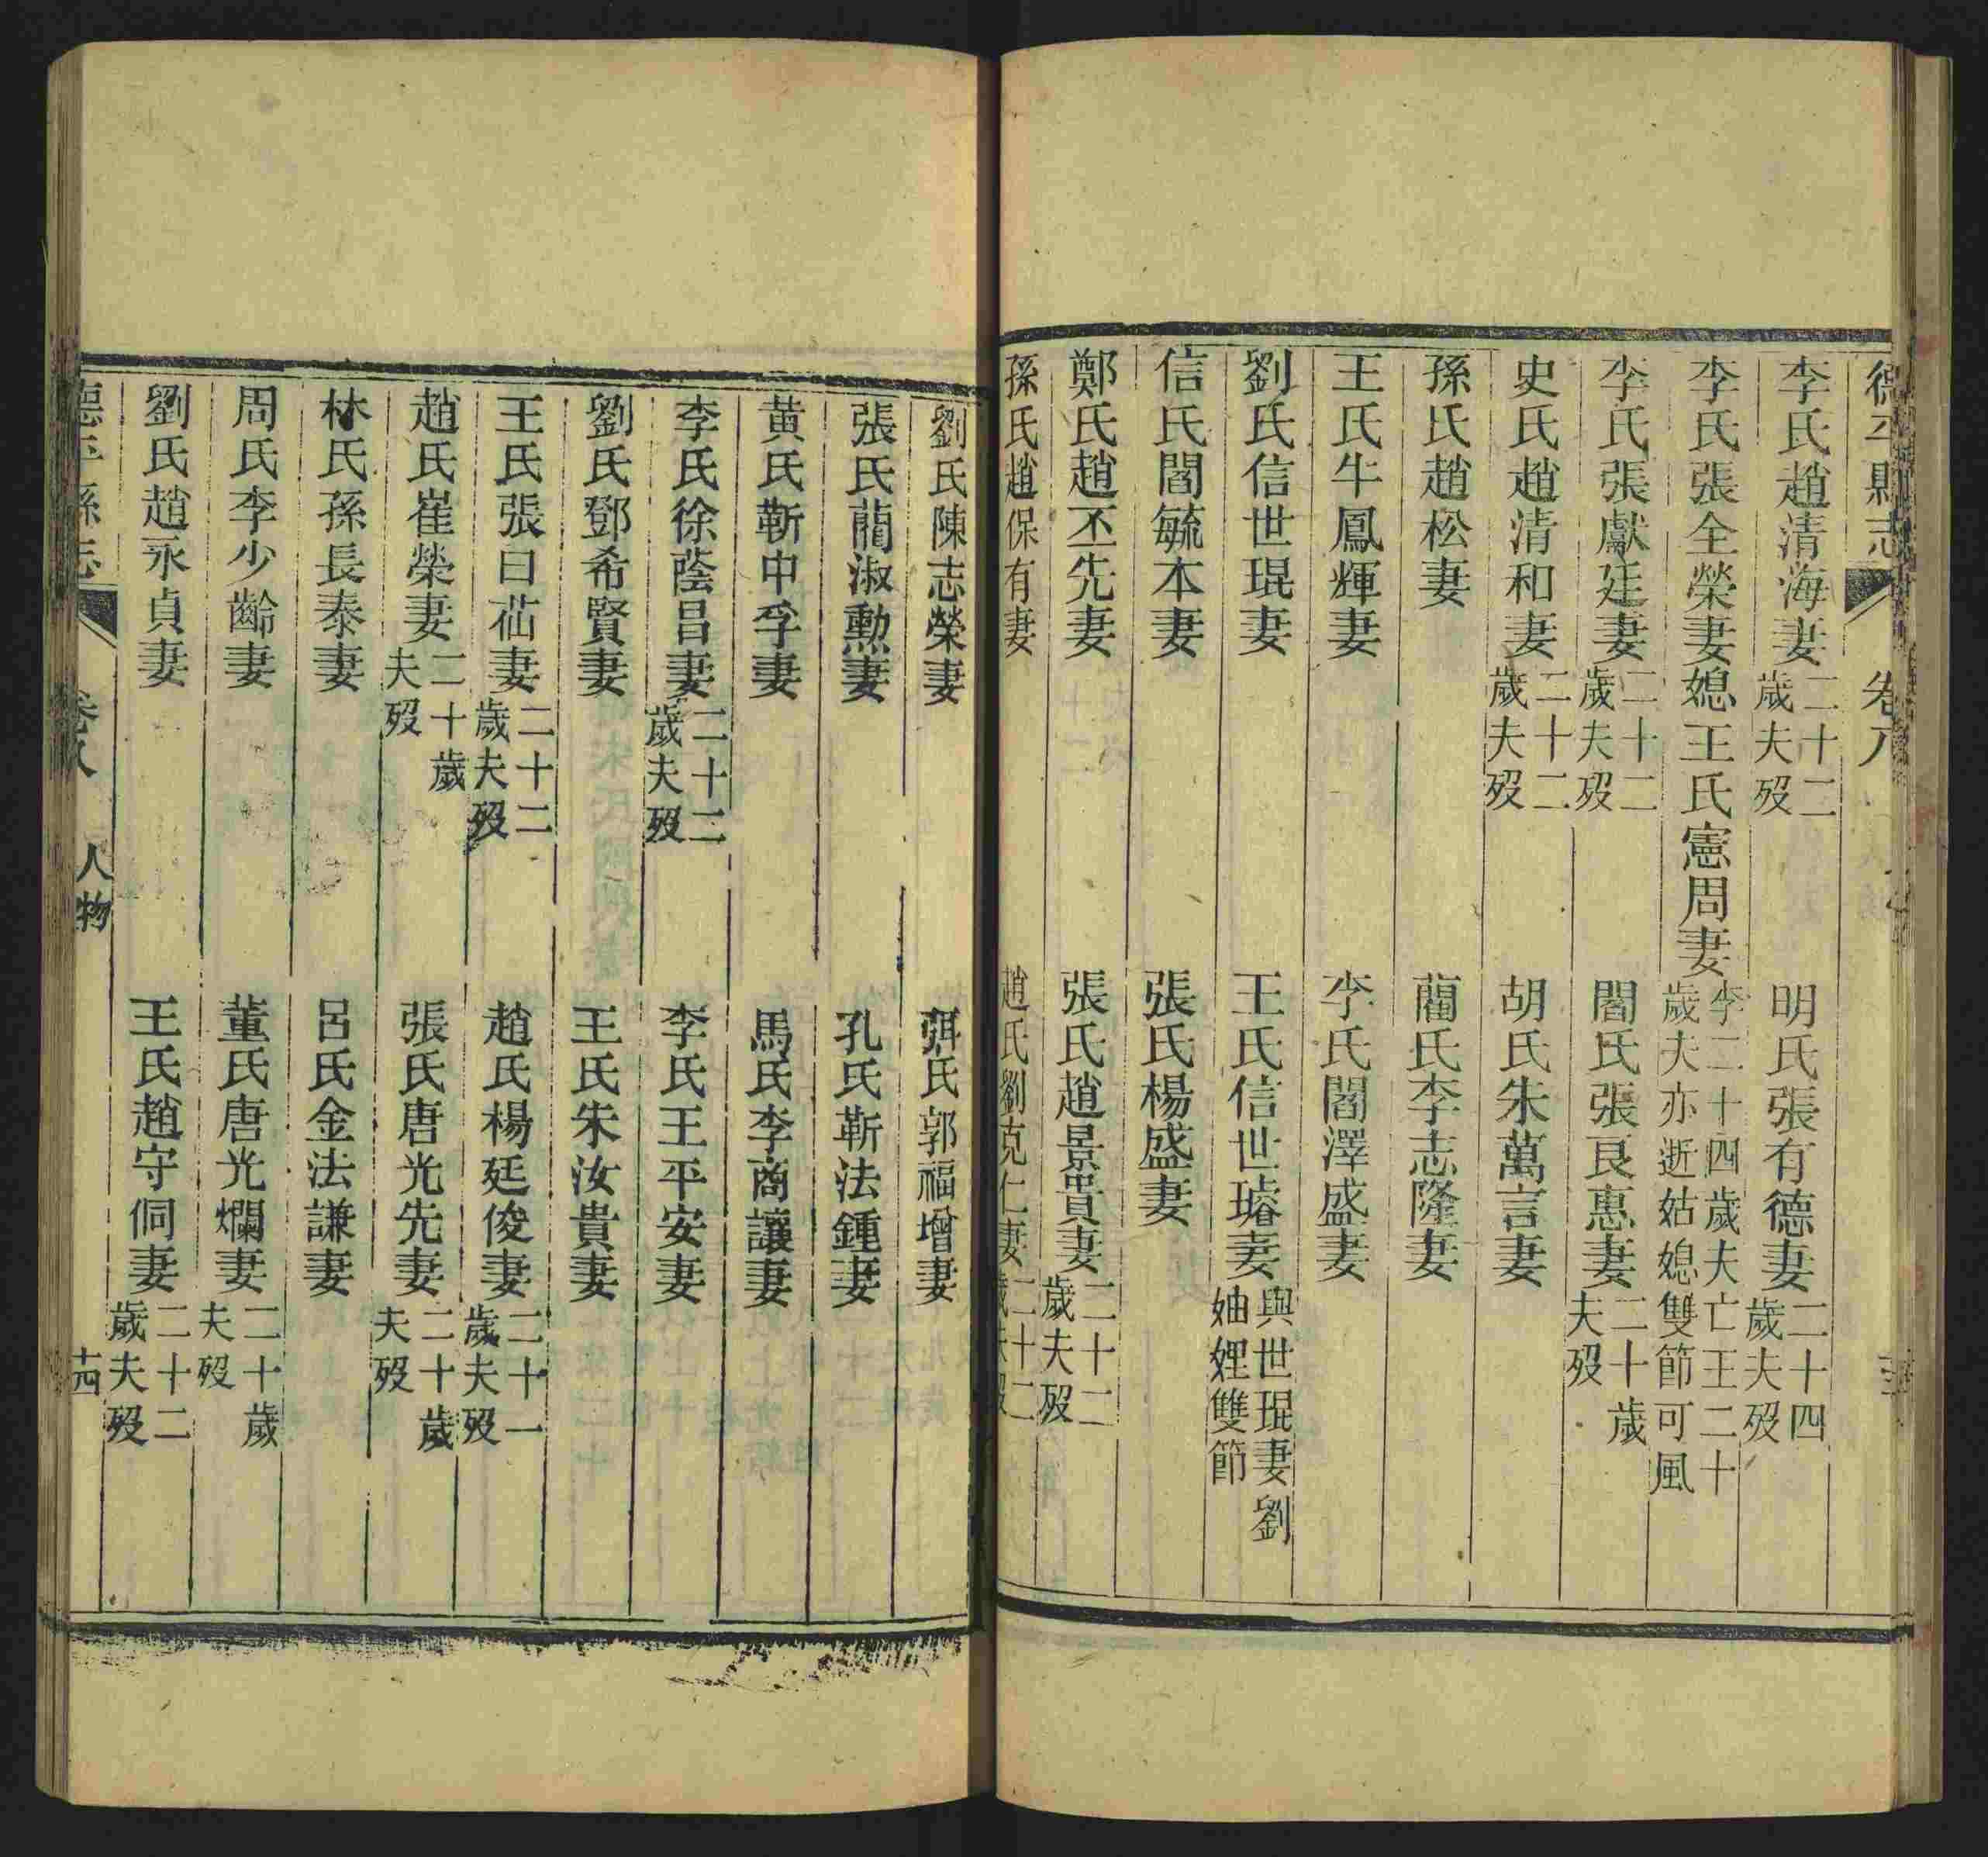 德平縣志 卷八
李氏趙清海妻二十二歲夫歿 明氏張有德妻二十四歲夫歿
李氏張全榮妻媳王氏憲周妻李二十四歲夫亡王二十歲夫亦逝姑媳雙節可風
李氏張獻廷妻二十二歲夫歿 閻氏張良惠妻二十歲夫歿
史氏趙清和妻二十二歲夫歿 胡氏朱萬言妻
孫氏趙松妻 藺氏李志隆妻
王氏牛鳳輝妻 李氏閻澤盛妻
劉氏信世琨妻 王氏信世璿妻與世琨妻劉妯娌雙節
信氏閻毓本妻 張氏楊盛妻
鄭氏趙丕先妻 張氏趙景貴妻二十二歲夫歿
孫氏趙保有妻 趙氏劉克仁妻二十二歲夫歿
劉氏陳志榮妻 弭氏郭福增妻
張氏藺淑勲妻 孔氏靳法鍾妻
黃氏靳中孚妻 馬氏李商讓妻
李氏徐蔭昌妻二十二歲夫歿 李氏王平安妻
劉氏鄧希賢妻 王氏朱汝貴妻
王氏張曰苮妻二十二歲夫歿 趙氏楊廷俊妻二十一歲夫歿
趙氏崔榮妻二十歲夫歿 張氏唐光先妻二十歲夫歿
林氏孫長泰妻 呂氏金法謙妻
周氏李少齡妻 董氏唐光爛妻二十歲夫歿
劉氏趙永貞妻 王氏趙守侗妻二十二歲夫歿
德平縣志 卷八 人物 十四